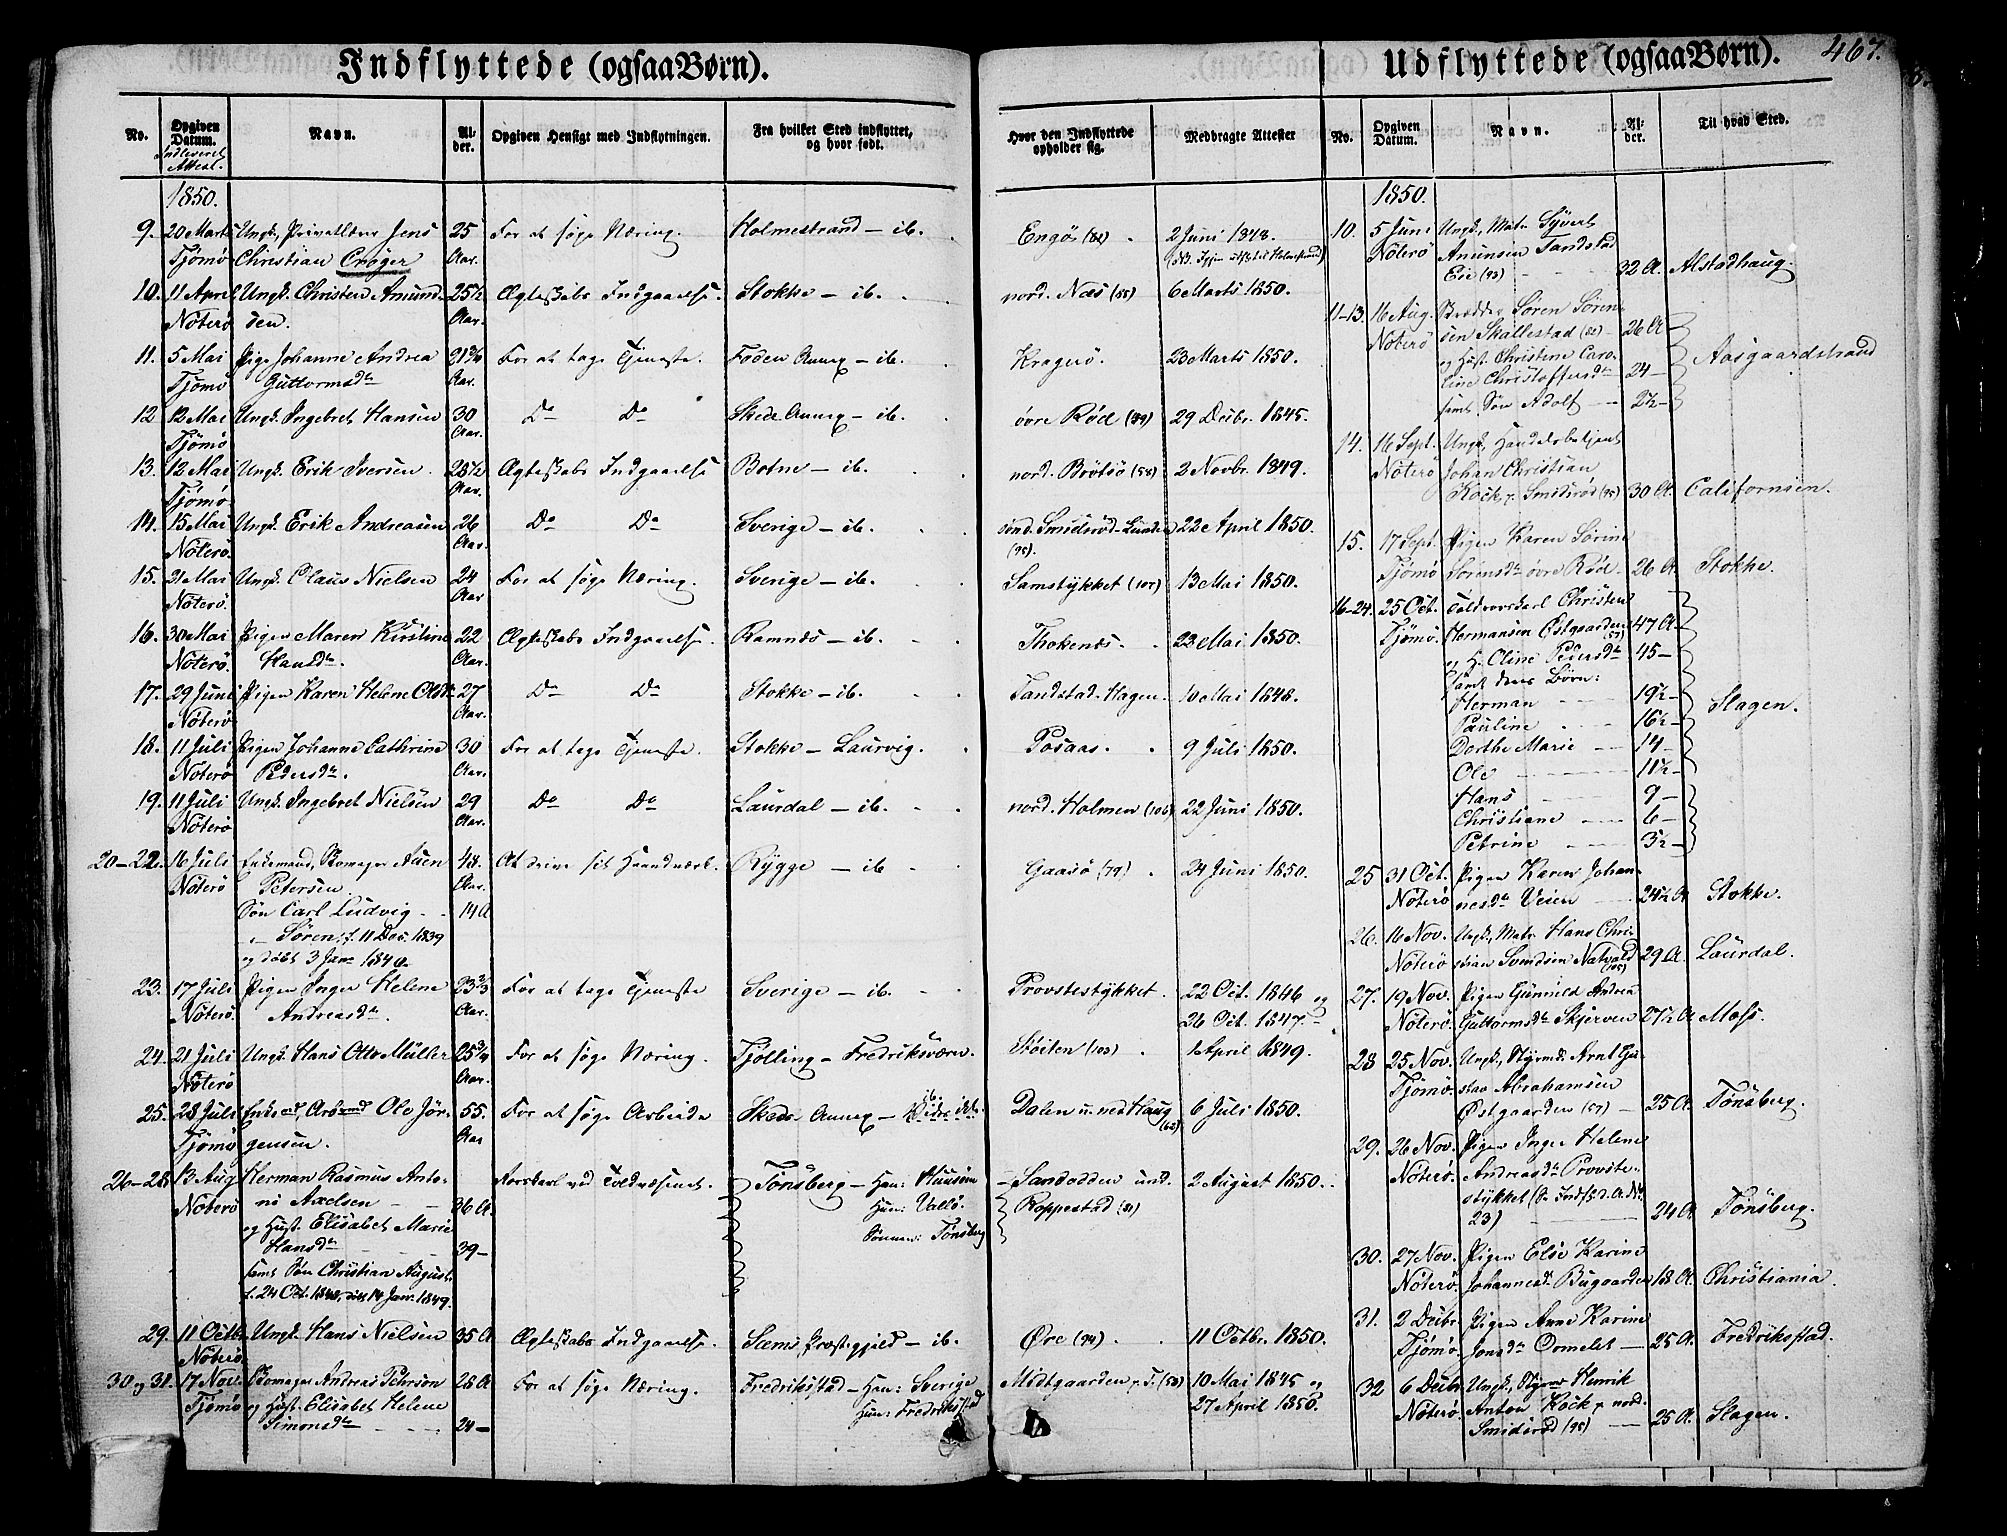 Indflyttede (ogsaa Børn).
No. Opgiven Datum. Indleveret Attest. Navn. Alder. Opgiven Hensigt med Indflytningen. Fra hvilket Sted indflyttet, og hvor født. Hvor den Indflyttede opholder sig. Medbragte Attester
1850.
9. 20 Marts Ungk., Privatlærer Jens 25 For at søge Næring. Holmestrand – ib. Engö 2 Juni 1848.
Tjömö Christian Cröger Aar.
10. 11 April Ungk. Christen Amund- 25½ Ægteskabs Indgaaelse. Stokke – ib. nord. Næs (88) 6 Marts 1850.
Nöterö sen. Aar.
11. 5 Mai Pige Johanne Andrea 21 For at tage Tjeneste. Foden Annex – ib. Kragerö. 23 Marts 1850.
Tjömö Guttormsdr. Aar.
12 12 Mai Ungk. Ingebret Hansen 30 Do Do Skede Annex – ib. övre Röd (49) 29 Decbr. 1845.
Tjömö Aar.
13. 12 Mai Ungk. Erik Iversen 28½ Ægteskabs Indgaaelse Botne – ib. nord. Brötsö (58) 2 Novbr. 1849.
Tjömö Aar.
14. 15 Mai Ungk. Erik Andreasen 26 Do Do Sverige – ib. sönd. Smidsröd-Lunden 22 April 1850.
Nöterö. Aar. (95).
15. 21 Mai Ungk. Claus Nielsen 24 For at søge Næring. Sverige – ib. Samstykket (107) 13 Mai 1850.
Nöterö. Aar
16. 30 Mai Pigen Maren Kirstine 22 Ægteskabs Indgaaelse. Ramnæs – ib. Thokenæs. 23 Mai 1850.
Nöterö. Hansdr. Aar.
17. 29 Juni Pigen Karen Helene Olsdr. 27 Do Do Stokke – ib. Tandstad-Hagen. 10 Mai 1848.
Nöterö Aar.
18. 11 Juli Pigen Johanne Cathrine 30 For at tage Tjeneste. Stokke – Laurvig. Rosaas. 9 Juli 1850.
Nöterö Pedersdr. Aar.
19. 11 Juli Ungk. Ingebret Nielsen 29 Do Do Laurdal – ib. nord. Holmen (106) 22 Juni 1850.
Nöterö Aar.
20–22. 16 Juli Enkemand, Skomager Auen 48. At drive sit Haandværk. Rygge – ib Gaasö (79) 24 Juni 1850.
Nöterö Petersen Aar.
Sön Carl Ludvig 14 A
„ Sören, f. 11 Dec. 1839
og döbt 3 Janr. 1840.
23. 17 Juli Pigen Inger Helene 23⅔ For at tage Tjeneste Sverige – ib. Provstestykket. 22 Oct. 1846 og
Nöterö. Andreasdr. Aar. 26 Oct. 1847.
24. 21 Juli Ungk. Hans Otto Müller 25¾ For at søge Næring. Tjölling – Fredriksværn. Stöiten (103) 1 April 1849.
Nöterö Aar.
25. 28 Juli Enkemd. Arbmd. Ole Jör- 55. For at søge Arbeide Skede Annex – ib. Dalen u. ned Haug (62) 6 Juli 1850.
Tjömö gensen. Aar
26–28 13 Aug Herman Rasmus Anto- Korskarl ved Toldvæsenet. Tönsberg – Han: Sandodden und. 2 August 1850.
Nöterö ni Axelsen 36 A. Hun: Vallö. Roppestad (81)
og Hust. Elisabet Marie Sönnen: Tönsberg
Hansdr. 39 –
samt Sön Christian August,
f. 24 Oct. 1848, döbt 14 Janr. 1849.
29. 11 Octbr. Ungk. Hans Nielsen 35 A Ægteskabs Indgaaelse. Sems Præstegjeld – ib. Øre (94) 11 Octbr. 1850.
Nöterö
30 og 31. 17 Nov. Skomager Andreas Peterson 28 A For at søge Næring. Fredrikstad – Han: Sverige Midtgaarden p. T. (58) 10 Mai 1845 og
Tjömö og Hust. Elisabet Helene Hun: Fredrikstad 27 April 1850.
Simonsdr. 24 –
Udflyttede (ogsaa Børn). 467.
No. Opgiven Datum. Navn. Alder. Til hvad Sted.
1850.
10. 5 Juni Ungk., Matr. Syvert
Nöterö Anunsen Tandstad
Eie (93) 32 A. Alstadhaug.
11–13. 16 Aug. Skrædder Sören Sören-
Nöterö sen Skallestad (82) 26 A Aasgaardstrand
og Hust. Christine Caro-
line Christoffersdr. 24 –
samt Sön Adolf 2½ –
14. 16 Sept. Ungk. Handelsbetjent
Nöterö Johan Christian
Kock p. Smidsröd (95) 30 A. Californien.
15. 17 Sept. Pigen Karen Sörine
Tjömö Sörensdr. övre Röd 26 A Stokke.
16–24. 25 Oct. Toldroerskarl Christen
Tjömö. Hermansen Østgaarden (57) 47 A –
og H. Oline Pedersdr. 45 –
samt deres Börn:
Herman 19½ – Slagen.
Pauline 16½ –
Dorthe Marie 14 –
Ole 11½ –
Hans 9 –
Christiane 6 –
Petrine 3½ –
25 31 Oct. Pigen Karen Johan-
Nöterö nesdr. Veien 24½ A Stokke.
26. 16 Nov. Ungk., Matr. Hans Chri-
Nöterö stian Svendsen Nætvold (105) 29 A. Laurdal.
27. 19 Nov. Pigen Gunnild Andrea
Nöterö. Guttormsdr. Skjerven 27½ A Moss.
28 25 Nov. Ungk., Styrmd. Arnt Gu-
Tjömö. stav Abrahamsen
Østgaarden (57) 25 A. Tönsberg.
29. 26 Nov. Pigen Inger Helene
Nöterö. Andreasdr. Provste-
stykket (Se Indfl. d. A. No.
23) 24 A Tönsberg.
30. 27 Nov. Pigen Else Karine
Nöterö. Johannesdr. Bugaarden 18 A. Christiania.
31. 2 Decbr. Pigen Anne Karine
Tjömö. Jonsdr. Ormelet 25 A. Fredrikstad.
32 6 Decbr. Ungk., Styrmd. Henrik
Nöterö. Anton Kock p. nord.
Smidsröd (95) 25 A. Slagen.